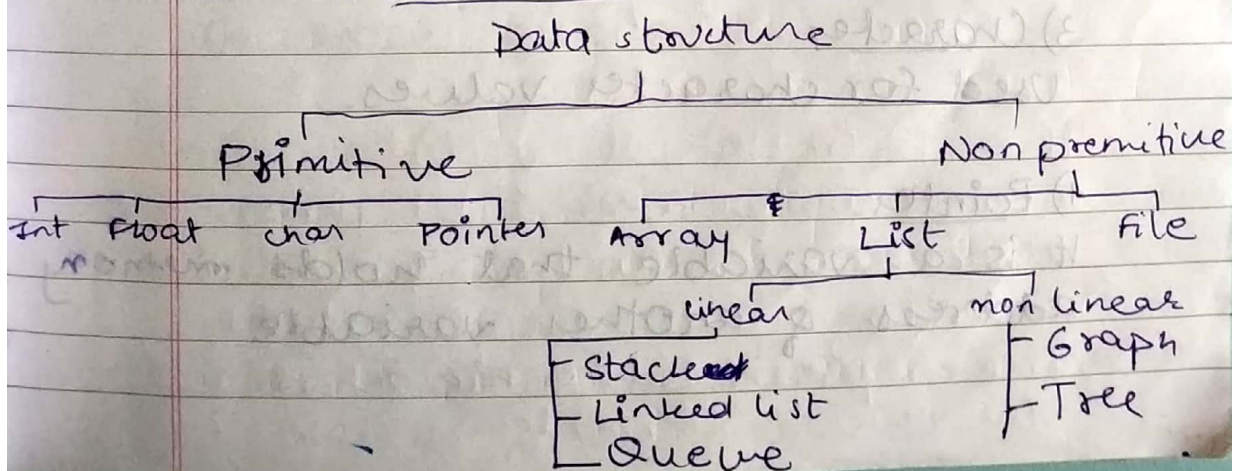 Data structure
Primitive Non premitive
Int Float char Pointer Array List File
linear non linear
Stack Graph
Linked list Tree
Queue